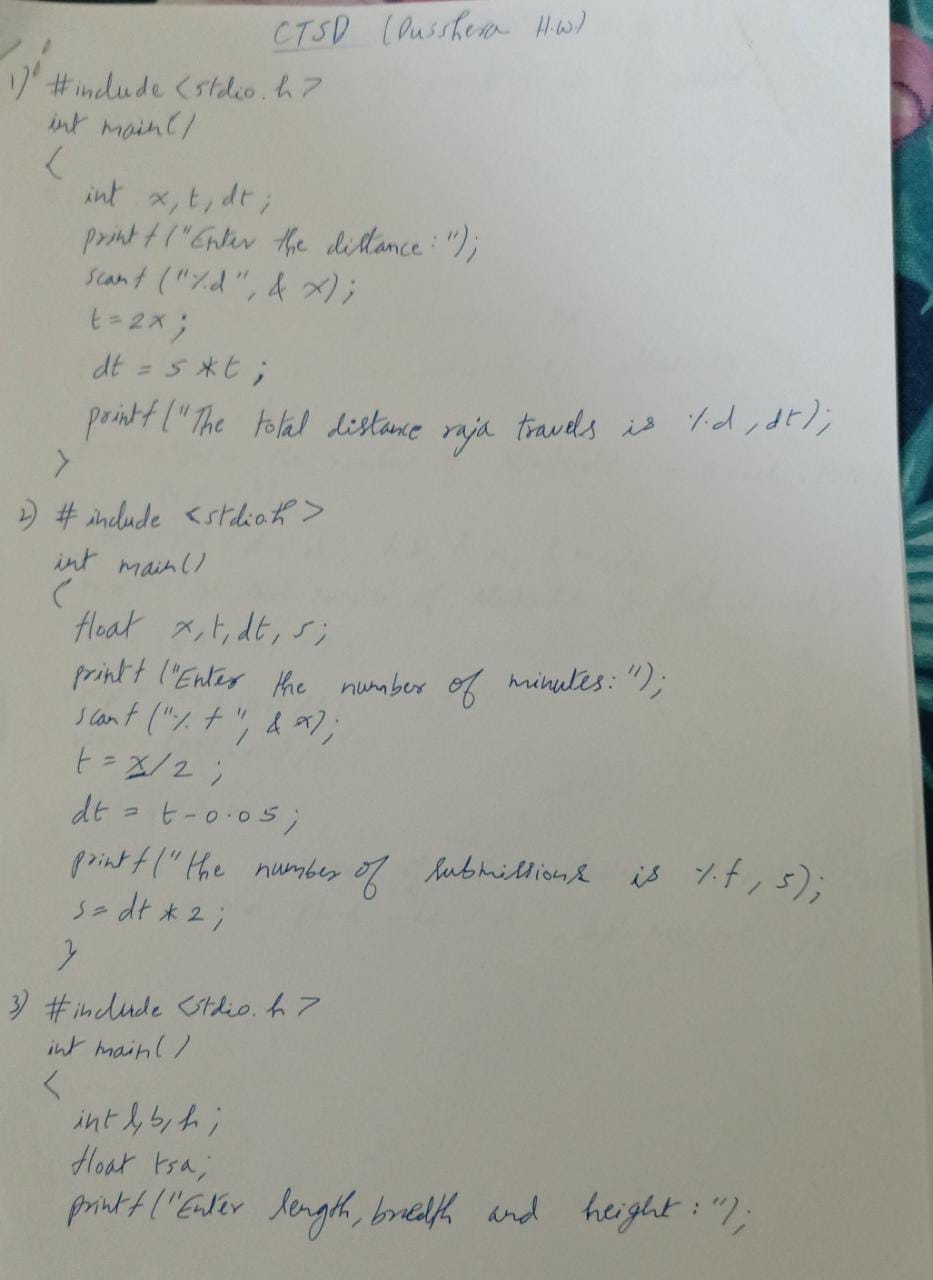 CTSD (Dusshera H.W)
1) #include <stdio.h>
int main()
{
int x, t, dt;
printf("Enter the distance:");
scanf("%d", & x);
t = 2x;
dt = 5 * t;
printf("The total distance raja travels is %d, dt);
}
2) # include <stdio.h>
int main()
{
float x, t, dt, s;
printf("Enter the number of minutes:");
scanf("%f", & x);
t = x/2;
dt = t-0.05;
printf("the number of submissions is %f, s);
s = dt * 2;
}
3) #include <stdio.h>
int main()
{
int l, b, h;
float tsa;
printf("Enter length, bredth and height:");